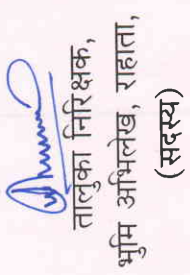 तालुका निरिक्षक,
भुमि अभिलेख, राहाता,
(सदस्य)